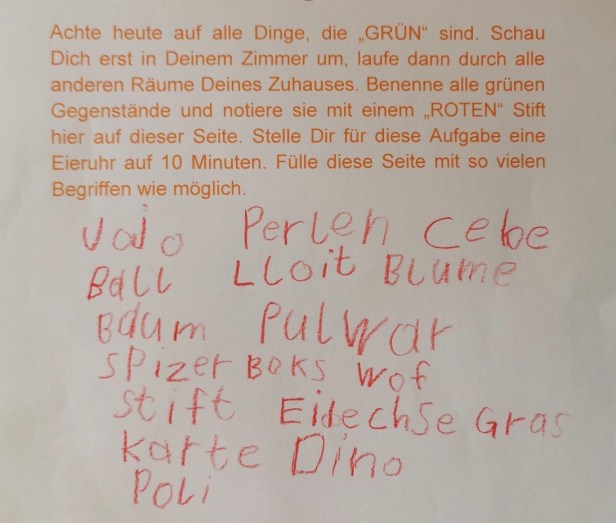 Achte heute auf alle Dinge, die „GRÜN“ sind. Schau
Dich erst in Deinem Zimmer um, laufe dann durch alle
anderen Räume Deines Zuhauses. Benenne alle grünen
Gegenstände und notiere sie mit einem „ROTEN“ Stift
hier auf dieser Seite. Stelle Dir für diese Aufgabe eine
Eieruhr auf 10 Minuten. Fülle diese Seite mit so vielen
Begriffen wie möglich.
Perlen Cebe
Ball Lloit Blume
Baum Pulwar
Spizer Boks Wof
Stift Eidechse Gras
Karte Dino
Poli